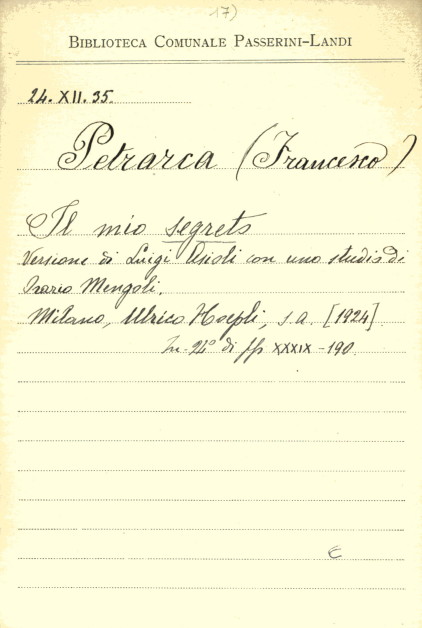 17)
BIBLIOTECA COMUNALE PASSERINI-LANDI
24. XII. 35.
Petrarca (Francesco)
Il mio segreto
Versione di Luigi Asioli con uno studio di
Orazio Mengoli.
Milano, Ulrico Hoepli, s. a. [1924]
In-24° di pp XXXIX-190.